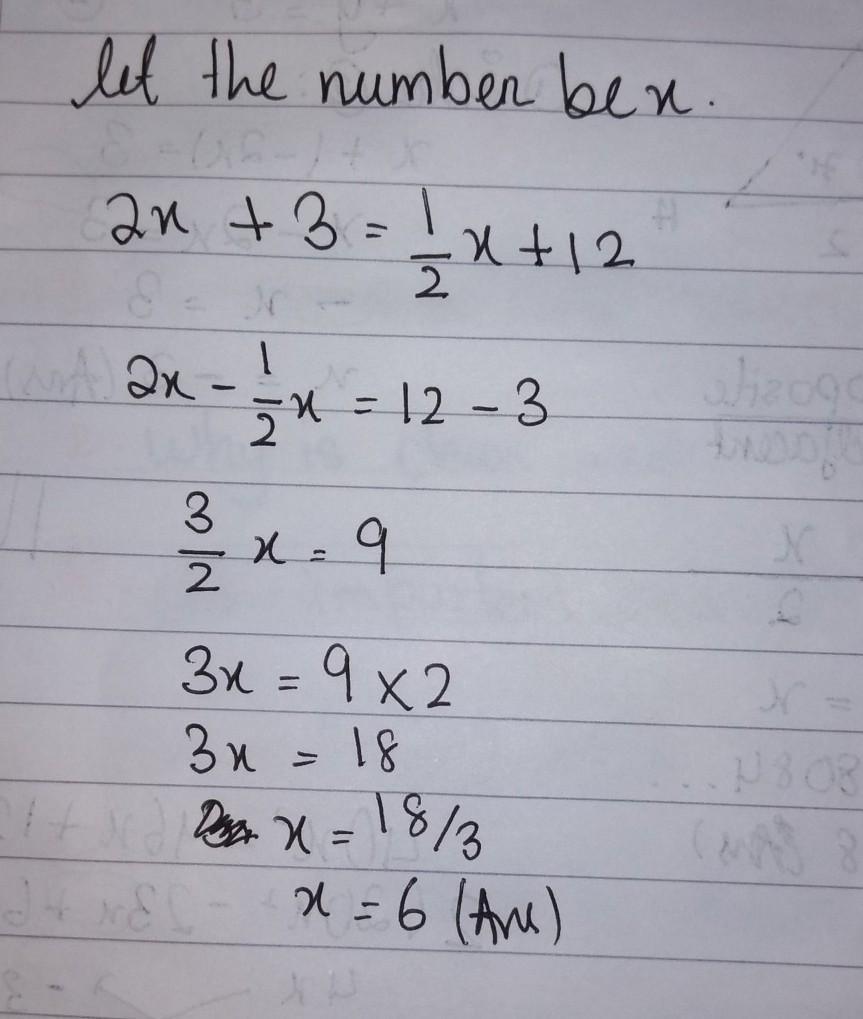 let the number be x.
2x + 3 = 1/2 x + 12
2x - 1/2 x = 12 - 3
3/2 x = 9
3x = 9 × 2
3x = 18
x = 18/3
x = 6 (Ans)